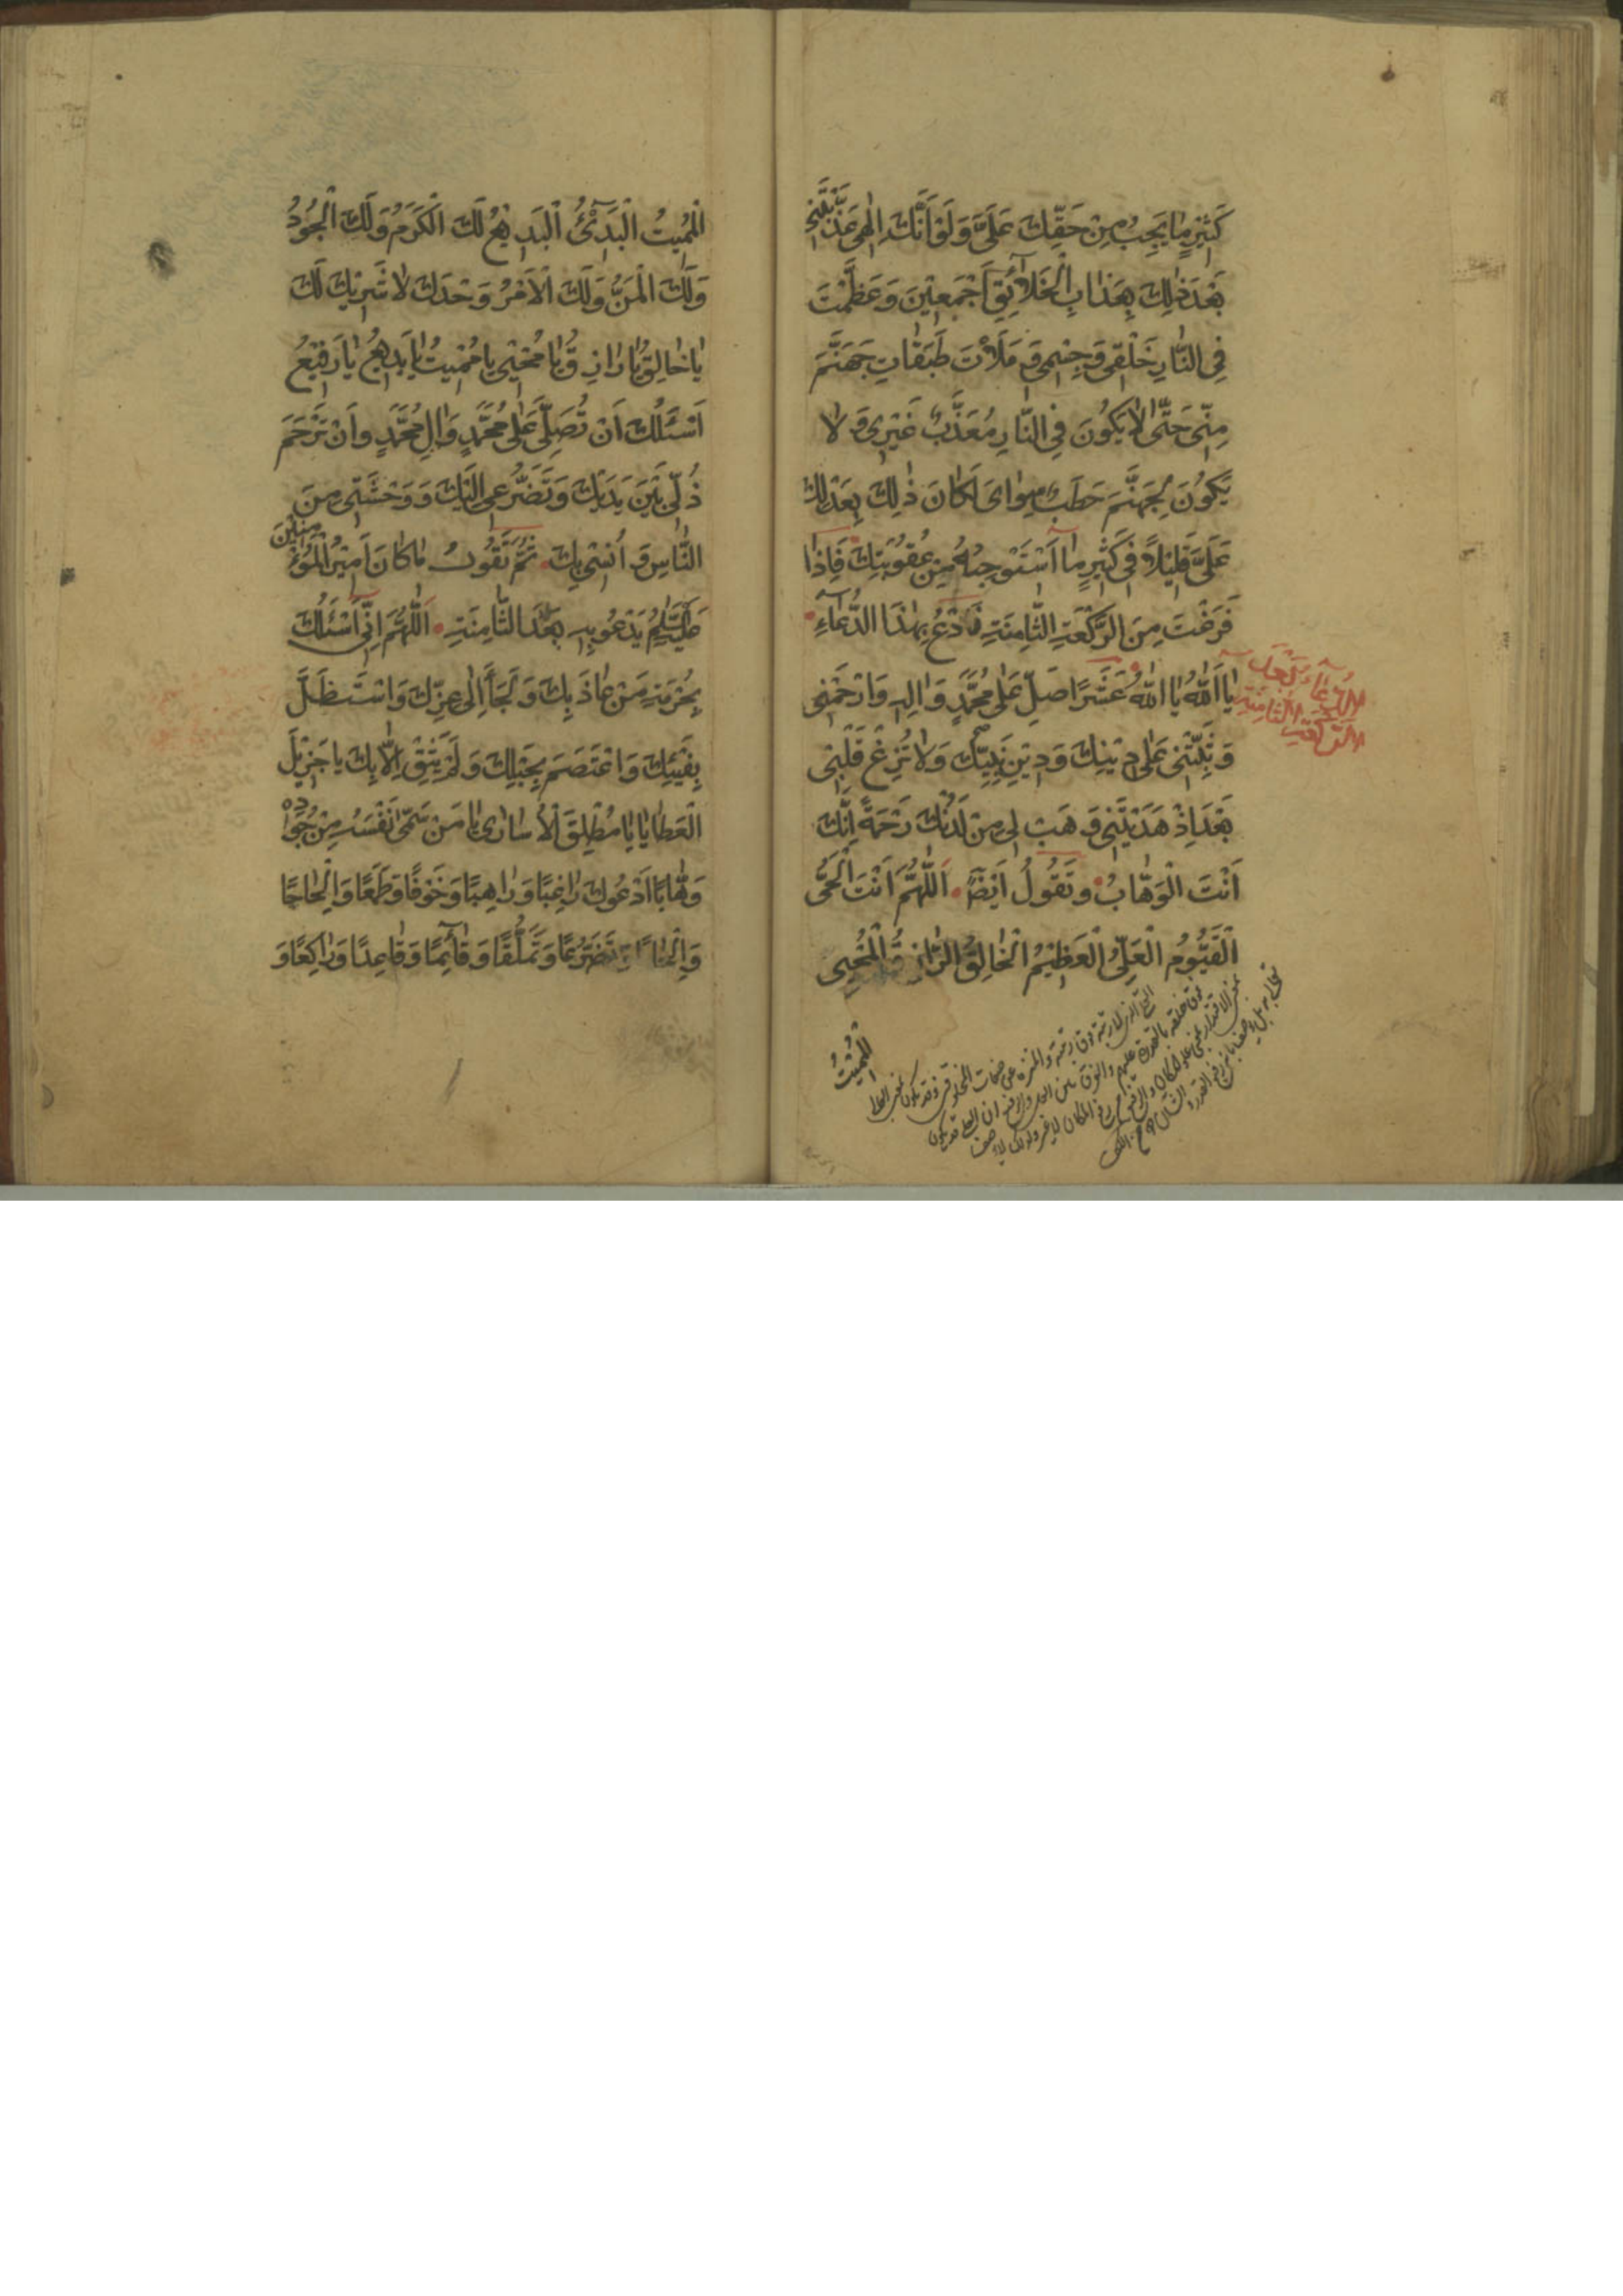 كَثِيْرِ مٰا يَجِبُ مِنْ حَقِّكَ عَلَيَّ وَلَوْ اَنَّكَ اِلٰهِى عَذَّبْتَنِى
بَعْدَ ذٰلِكَ بِعَذٰابِ الْخَلآٰئِقِ اَجْمَعِيْنَ وَعَظَّمْتَ
فِى النّٰارِ خَلْقِى وَجِسْمِى وَ مَلَأْتَ طَبَقٰاتِ جَهَنَّمَ
مِنِّى حَتّٰى لاٰ يَكُونَ فِى النّٰارِ مُعَذَّبٌ غَيْرِى وَ لاٰ
يَكُونَ لِجَهَنَّمَ حَطَبٌ سِوٰاىَ لَكٰانَ ذٰلِكَ بِعَدْلِكَ
عَلَيَّ قَلِيْلاً فِى كَثِيْرِ مٰا اَسْتَوْجِبُهُ مِنْ عُقُوْبَتِكَ فَاِذٰا
فَرَغْتَ مِنَ الرَّكْعَةِ الثّٰامِنَةِ فَادْعُ بِهٰذَا الدُّعٰٓاءِ
يٰا اَللّٰهُ يٰا اَللّٰهُ عَشْرًا صَلِّ عَلٰى مُحَمَّدٍ وَاٰلِهِ وَارْحَمْنِى
وَثَبِّتْنِى عَلٰى دِيْنِكَ وَدِيْنِ نَبِيِّكَ وَلاٰ تُزِغْ قَلْبِى
بَعْدَ اِذْ هَدَيْتَنِى وَ هَبْ لِى مِنْ لَدُنْكَ رَحْمَةً اِنَّكَ
اَنْتَ الْوَهّٰابُ وتَقُولُ اَيْضًا اَللّٰهُمَّ اَنْتَ الْحَىُّ
الْقَيُّوُمُ الْعَلِىُّ الْعَظِيْمُ الْخٰالِقُ الرّٰازِقُ الْمُحْيِى
الدُّعٰاءُ بَعْدَ
الرَّكْعَةِ الثّٰامِنَةِ
الْمُمِيْتُ
الْمُمِيتُ الْبَدِىْٓءُ الْبَدِيْعُ لَكَ الْكَرَمُ وَلَكَ الْجُوُدُ
وَلَكَ الْمَنُّ وَلَكَ الْاَمْرُ وَحْدَكَ لاٰ شَرِيْكَ لَكَ
يٰا خٰالِقُ يٰا رٰازِقُ يٰا مُحْيِى يٰا مُمْيتُ يٰا بَدِيْعُ يٰا رَفِيْعُ
اَسْئَلُكَ اَنْ تُصَلِّىَ عَلٰى مُحَمَّدٍ وَاٰلِ مُحَمَّدٍ وَاَنْ تَرْحَمَ
ذُلِّى بَيْنَ يَدَيْكَ وَتَضَرُّعِى اِلَيْكَ وَوَحْشَتِى مِنَ
النّٰاسِ وَ اُنْسِى بِكَ ثُمَّ تَقُوُلُ مٰا كٰانَ اَمِيْرُ الْمُؤْمِنِيْنَ
عَلَيْهِ السَّلٰمُ يَدْعُو بِهِ بَعْدَ الثّٰامِنَةِ اَللّٰهُمَّ اِنِّى اَسْئَلُكَ
بِحُرْمَةِ مَنْ عٰاذَ بِكَ وَلَجَأَ اِلٰى عِزِّكَ وَاسْتَظَلَّ
بِفَيْئِكَ وَاعْتَصَمَ بِحَبْلِكَ وَلَمْ يَثِقْ اِلاّٰ بِكَ يٰا جَزِيْلَ
الْعَطٰايٰا يٰا مُطْلِقَ الْاُسٰارٰى يٰا مَنْ سَمّٰى نَفْسَهُ مِنْ جُوْدِهِ
وَهّٰابًا اَدْعُوكَ رٰاغِبًا وَرٰاهِبًا وَخَوْفًا وَطَمَعًا وَاِلْحٰاحًا
وَاِلْحٰافًا وَتَضَرُّعًا وَتَمَلُّقًا وَقٰآئِمًا وَقٰاعِدًا وَرٰاكِعًا وَ